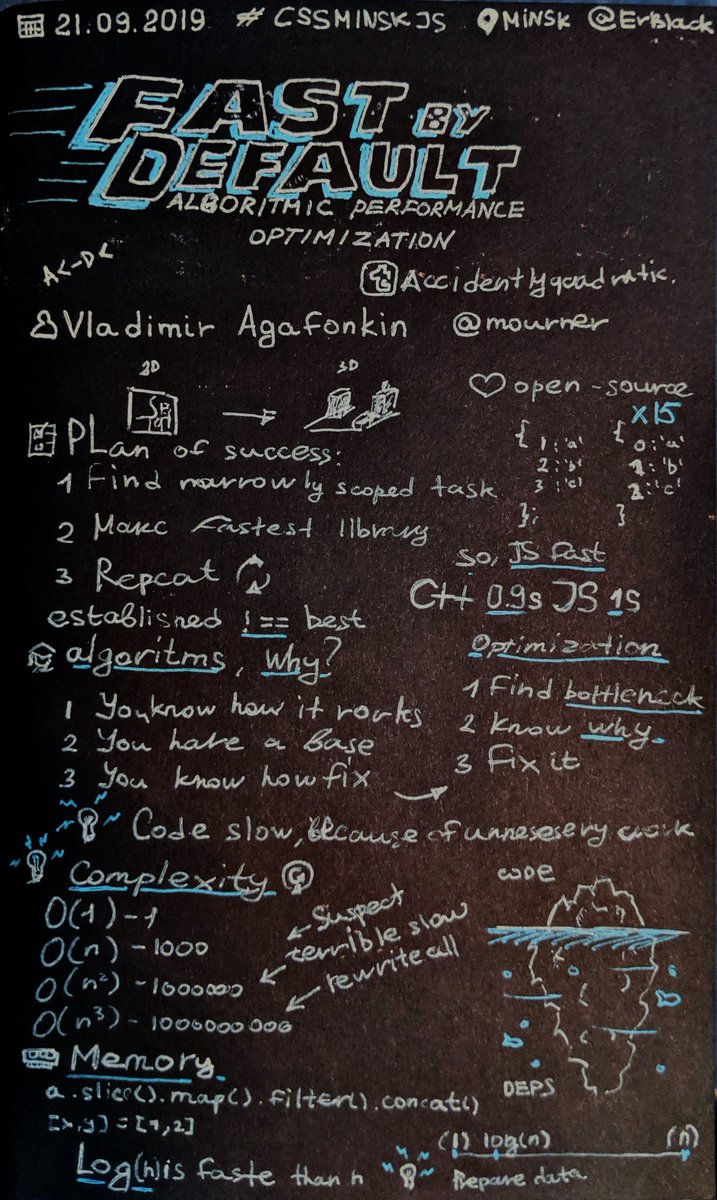 21.09.2019 # CSSMINSKJS MiNSK @ErBlack
FAST BY
DEFAULT
ALGORITHMIC PERFORMANCE
OPTIMIZATION
Accidentlyquadratic.
Vladimir Agafonkin @mourner
2D 3D
open-source
x15
{ {
1:'a' 0:'a'
2:'b' 1:'b'
3:'c' 2:'c'
}; }
PLan of success:
1 Find narrowly scoped task
2 Make fastest library
3 Repeat
so, JS fast
C++ 0.9s JS 1s
established !== best
algoritms, why?
1 You know how it works
2 You have a base
3 You know how fix
Optimization
1 Find bottleneck
2 Know why
3 Fix it
Code slow, because of unnesesery work
Complexity
O(1) - 1
O(n) - 1000
O(n²) - 1000000
O(n³) - 1000000000
Suspect
terrible slow
rewrite all
CODE
DEPS
Memory
a.slice().map().filter().concat()
[x,y]=[1,2]
(1) log(n) (n)
Log(n) is faste than n
Repare data